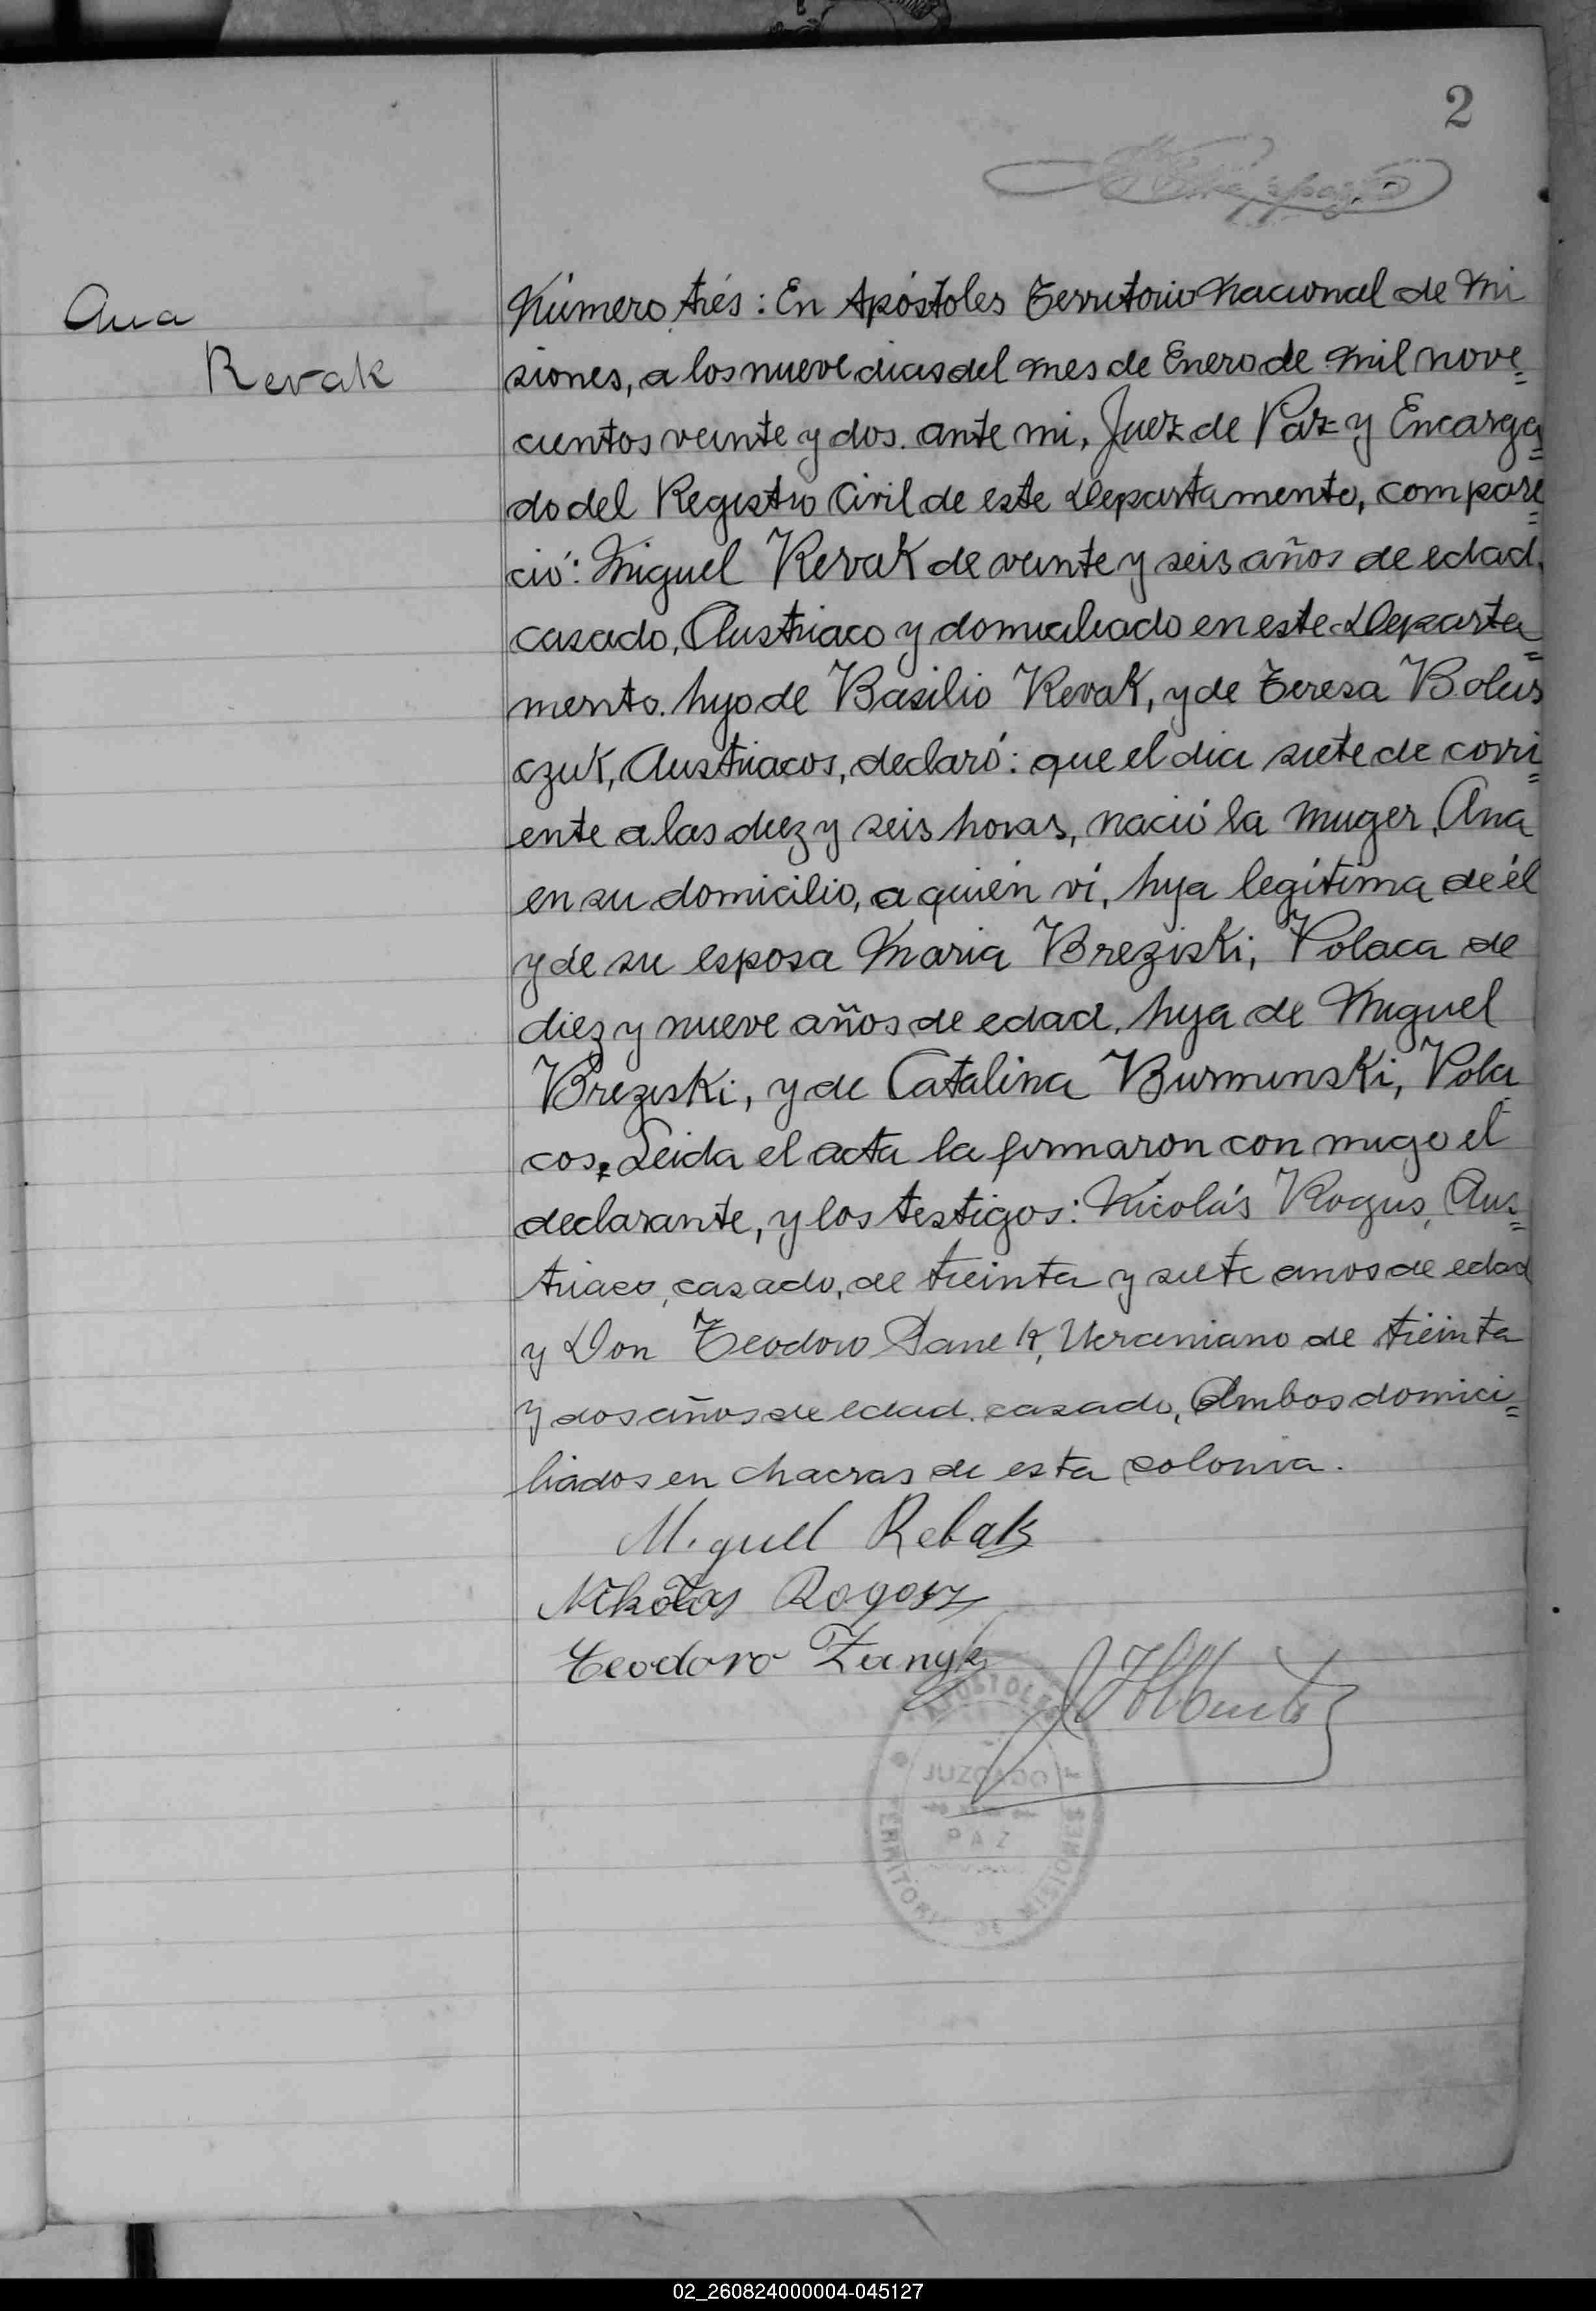 2
Ana
Revak
Número trés: En Apóstoles Territorio Nacional de Mi
siones, a los nueve dias del mes de Enero de mil nove=
cientos veinte y dos. ante mi, Juez de Paz y Encarga=
do del Registro Civil de este Departamento, compare=
ció: Miguel Revak de veinte y seis años de edad,
casado, Austriaco y domiciliado en este Departa=
mento. hijo de Basilio Revak, y de Teresa Bolus
czuk, Austriacos, declaró: que el dia siete de corri=
ente a las diez y seis horas, nació la muger, Ana
en su domicilio, a quién ví, hija legítima de él
y de su esposa Maria Breziski, Polaca de
diez y nueve años de edad, hija de Miguel
Breziski, y de Catalina Burminski, Pola
cos, Leida el acta la firmaron con migo el
declarante, y los testigos: Nicolás Rogus, Aus=
triaco, casado, de treinta y siete anos de edad
y Don Teodoro Danek, Ucraniano de treinta
y dos años de edad. casado, Ambos domici=
liados en chacras de esta colonia.
Miguel Rebak
Nikolas Rogosz
Teodoro Zanyk
APOSTOLES
JUZGADO
PAZ
TERRITORI DE MISIONES
02_260824000004-045127